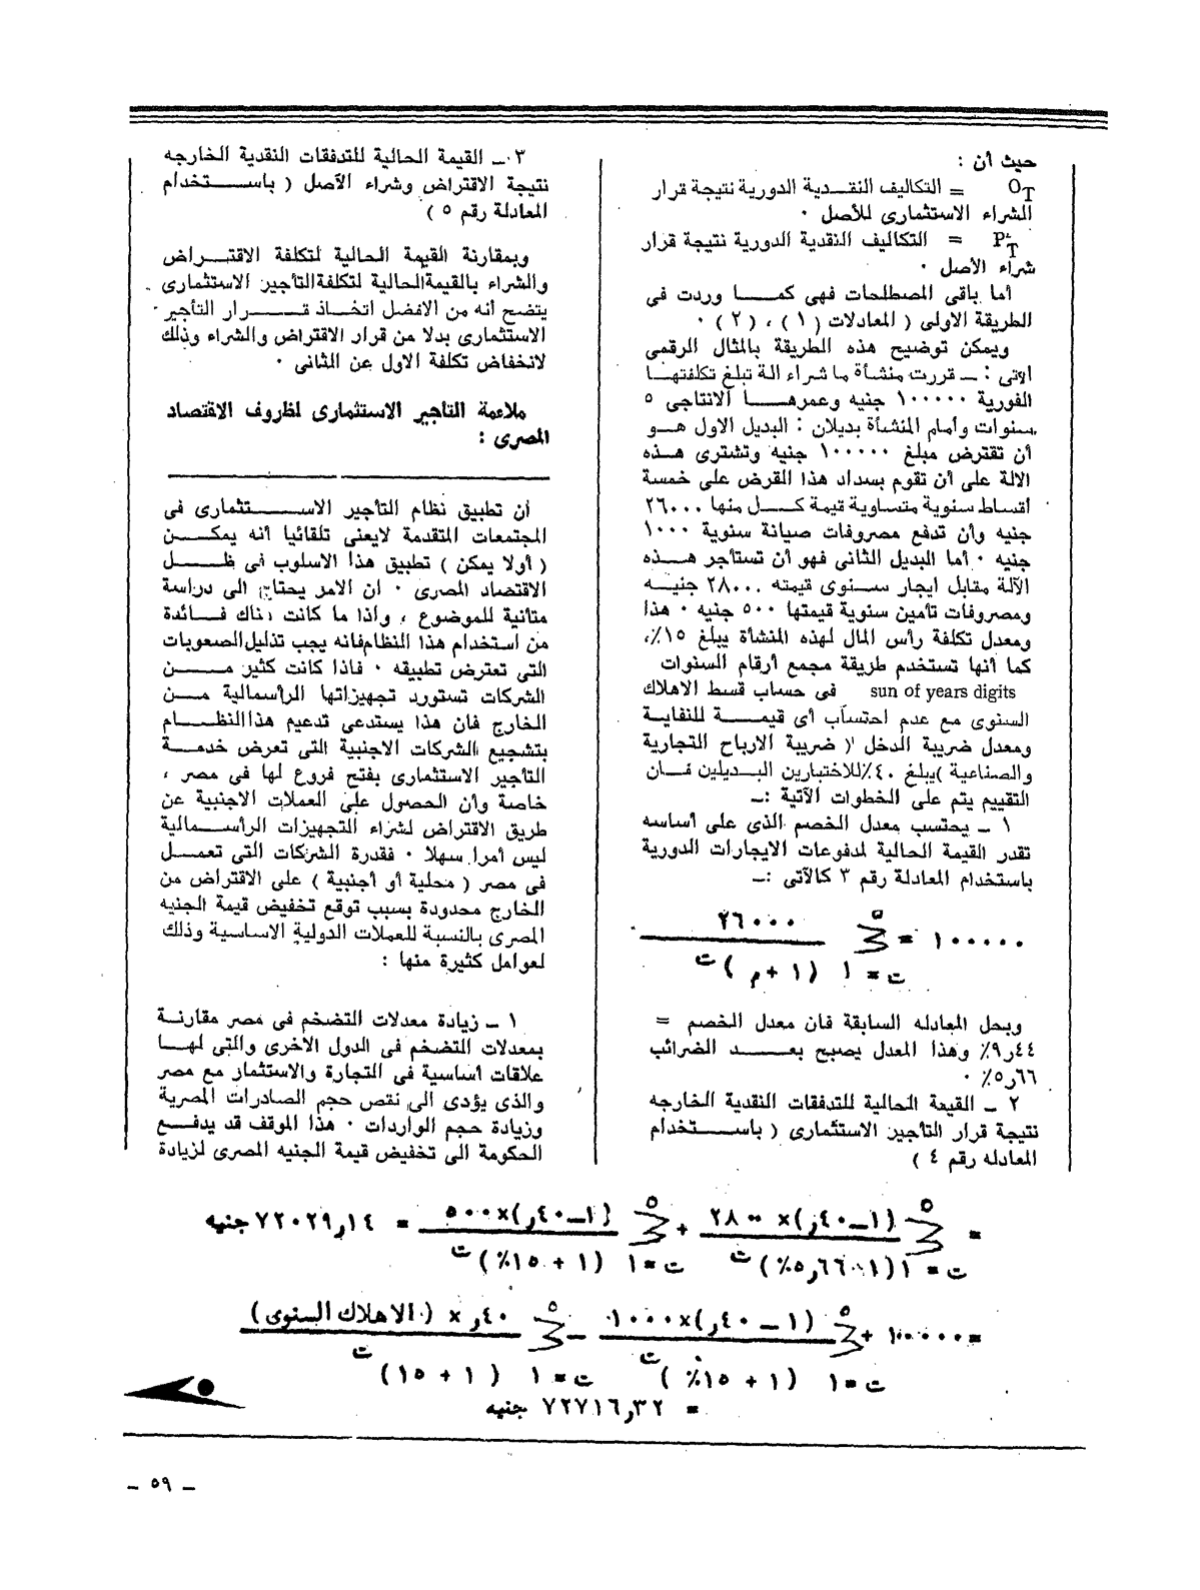 حيث أن :
O_T = التكاليف النقدية الدورية نتيجة قرار
الشراء الاستثمارى للأصل ٠
P_T = التكاليف النقدية الدورية نتيجة قرار
شراء الأصل ٠
أما باقى المصطلحات فهى كما وردت فى
الطريقة الاولى ( المعادلات ( ١ ) ، ( ٢ ) ٠
ويمكن توضيح هذه الطريقة بالمثال الرقمى
الاتى : ـ قررت منشأة ما شراء الة تبلغ تكلفتها
الفورية ١٠٠٠٠٠ جنيه وعمرها الانتاجى ٥
سنوات وأمام المنشأة بديلان : البديل الاول هو
أن تقترض مبلغ ١٠٠٠٠٠ جنيه وتشترى هذه
الالة على أن تقوم بسداد هذا القرض على خمسة
أقساط سنوية متساوية قيمة كل منها ٢٦٠٠٠
جنيه وأن تدفع مصروفات صيانة سنوية ١٠٠٠
جنيه ٠ أما البديل الثانى فهو أن تستأجر هذه
الآلة مقابل ايجار سنوى قيمته ٢٨٠٠٠ جنيه
ومصروفات تأمين سنوية قيمتها ٥٠٠ جنيه ٠ هذا
ومعدل تكلفة رأس المال لهذه المنشأة يبلغ ١٥٪،
كما أنها تستخدم طريقة مجمع أرقام السنوات
sun of years digits فى حساب قسط الاهلاك
السنوى مع عدم احتساب أى قيمة للنفاية
ومعدل ضريبة الدخل ( ضريبة الارباح التجارية
والصناعية )يبلغ ٤٠٪للاختبارين البديلين فان
التقييم يتم على الخطوات الآتية :ـ
١ ـ يحتسب معدل الخصم الذى على أساسه
تقدر القيمة الحالية لدفوعات الايجارات الدورية
باستخدام المعادلة رقم ٣ كالآتى :ـ
٥ ٢٦٠٠٠
١٠٠٠٠٠ = Σ
ت = ١ (١ + م ) ت
وبحل المعادله السابقة فان معدل الخصم =
٩٫٤٤٪ وهذا المعدل يصبح بعد الضرائب
٥٫٦٦٪ ٠
٢ ـ القيمة الحالية للتدفقات النقدية الخارجه
نتيجة قرار التأجير الاستثمارى ( باستخدام
المعادله رقم ٤ )
٣ ـ القيمة الحالية للتدفقات النقدية الخارجه
نتيجة الاقتراض وشراء الآصل ( باستخدام
المعادلة رقم ٥ )
وبمقارنة القيمة الحالية لتكلفة الاقتراض
والشراء بالقيمةالحالية لتكلفةالتأجير الاستثمارى
يتضح أنه من الافضل اتخاذ قرار التأجير
الاستثمارى بدلا من قرار الاقتراض والشراء وذلك
لانخفاض تكلفة الاول عن الثانى ٠
ملاءمة التأجير الاستثمارى لظروف الاقتصاد
المصرى :
أن تطبيق نظام التأجير الاستثمارى فى
المجتمعات المتقدمة لايعنى تلقائيا أنه يمكن
( أولا يمكن ) تطبيق هذا الاسلوب فى ظل
الاقتصاد المصرى ٠ ان الامر يحتاج الى دراسة
متأنية للموضوع ، واذا ما كانت هناك فائدة
من استخدام هذا النظام فانه يجب تذليل الصعوبات
التى تعترض تطبيقه ٠ فاذا كانت كثير من
الشركات تستورد تجهيزاتها الرأسمالية من
الخارج فان هذا يستدعى تدعيم هذا النظام
بتشجيع الشركات الاجنبية التى تعرض خدمة
التأجير الاستثمارى بفتح فروع لها فى مصر ،
خاصة وأن الحصول على العملات الاجنبية عن
طريق الاقتراض لشراء التجهيزات الرأسمالية
ليس أمرا سهلا ٠ فقدرة الشركات التى تعمل
فى مصر ( محلية أو أجنبية ) على الاقتراض من
الخارج محدودة بسبب توقع تخفيض قيمة الجنيه
المصرى بالنسبة للعملات الدولية الاساسية وذلك
لعوامل كثيرة منها :
١ ـ زيادة معدلات التضخم فى مصر مقارنة
بمعدلات التضخم فى الدول الاخرى والتى لها
علاقات أساسية فى التجارة والاستثمار مع مصر
والذى يؤدى الى نقص حجم الصادرات المصرية
وزيادة حجم الواردات ٠ هذا الموقف قد يدفع
الحكومة الى تخفيض قيمة الجنيه المصرى لزيادة
= Σ ٥ (١ـ٤٠ر)× ٢٨٠٠ + Σ ٥ (١ـ٤٠ر)×٥٠٠ = ٧٢٠٢٩٫١٤ جنيه
ت = ١ (١ ٥٫٦٦٪) ت ت = ١ (١ + ١٥٪) ت
= ١٠٠٠٠٠ + Σ ٥ (١ ـ ٤٠ر)×١٠٠٠ ـ Σ ٥ ٤٠ر × (الاهلاك السنوى)
ت = ١ (١ + ١٥٪) ت ت = ١ (١ + ١٥) ت
= ٧٢٧١٦٫٣٢ جنيه
ـ ٥٩ ـ